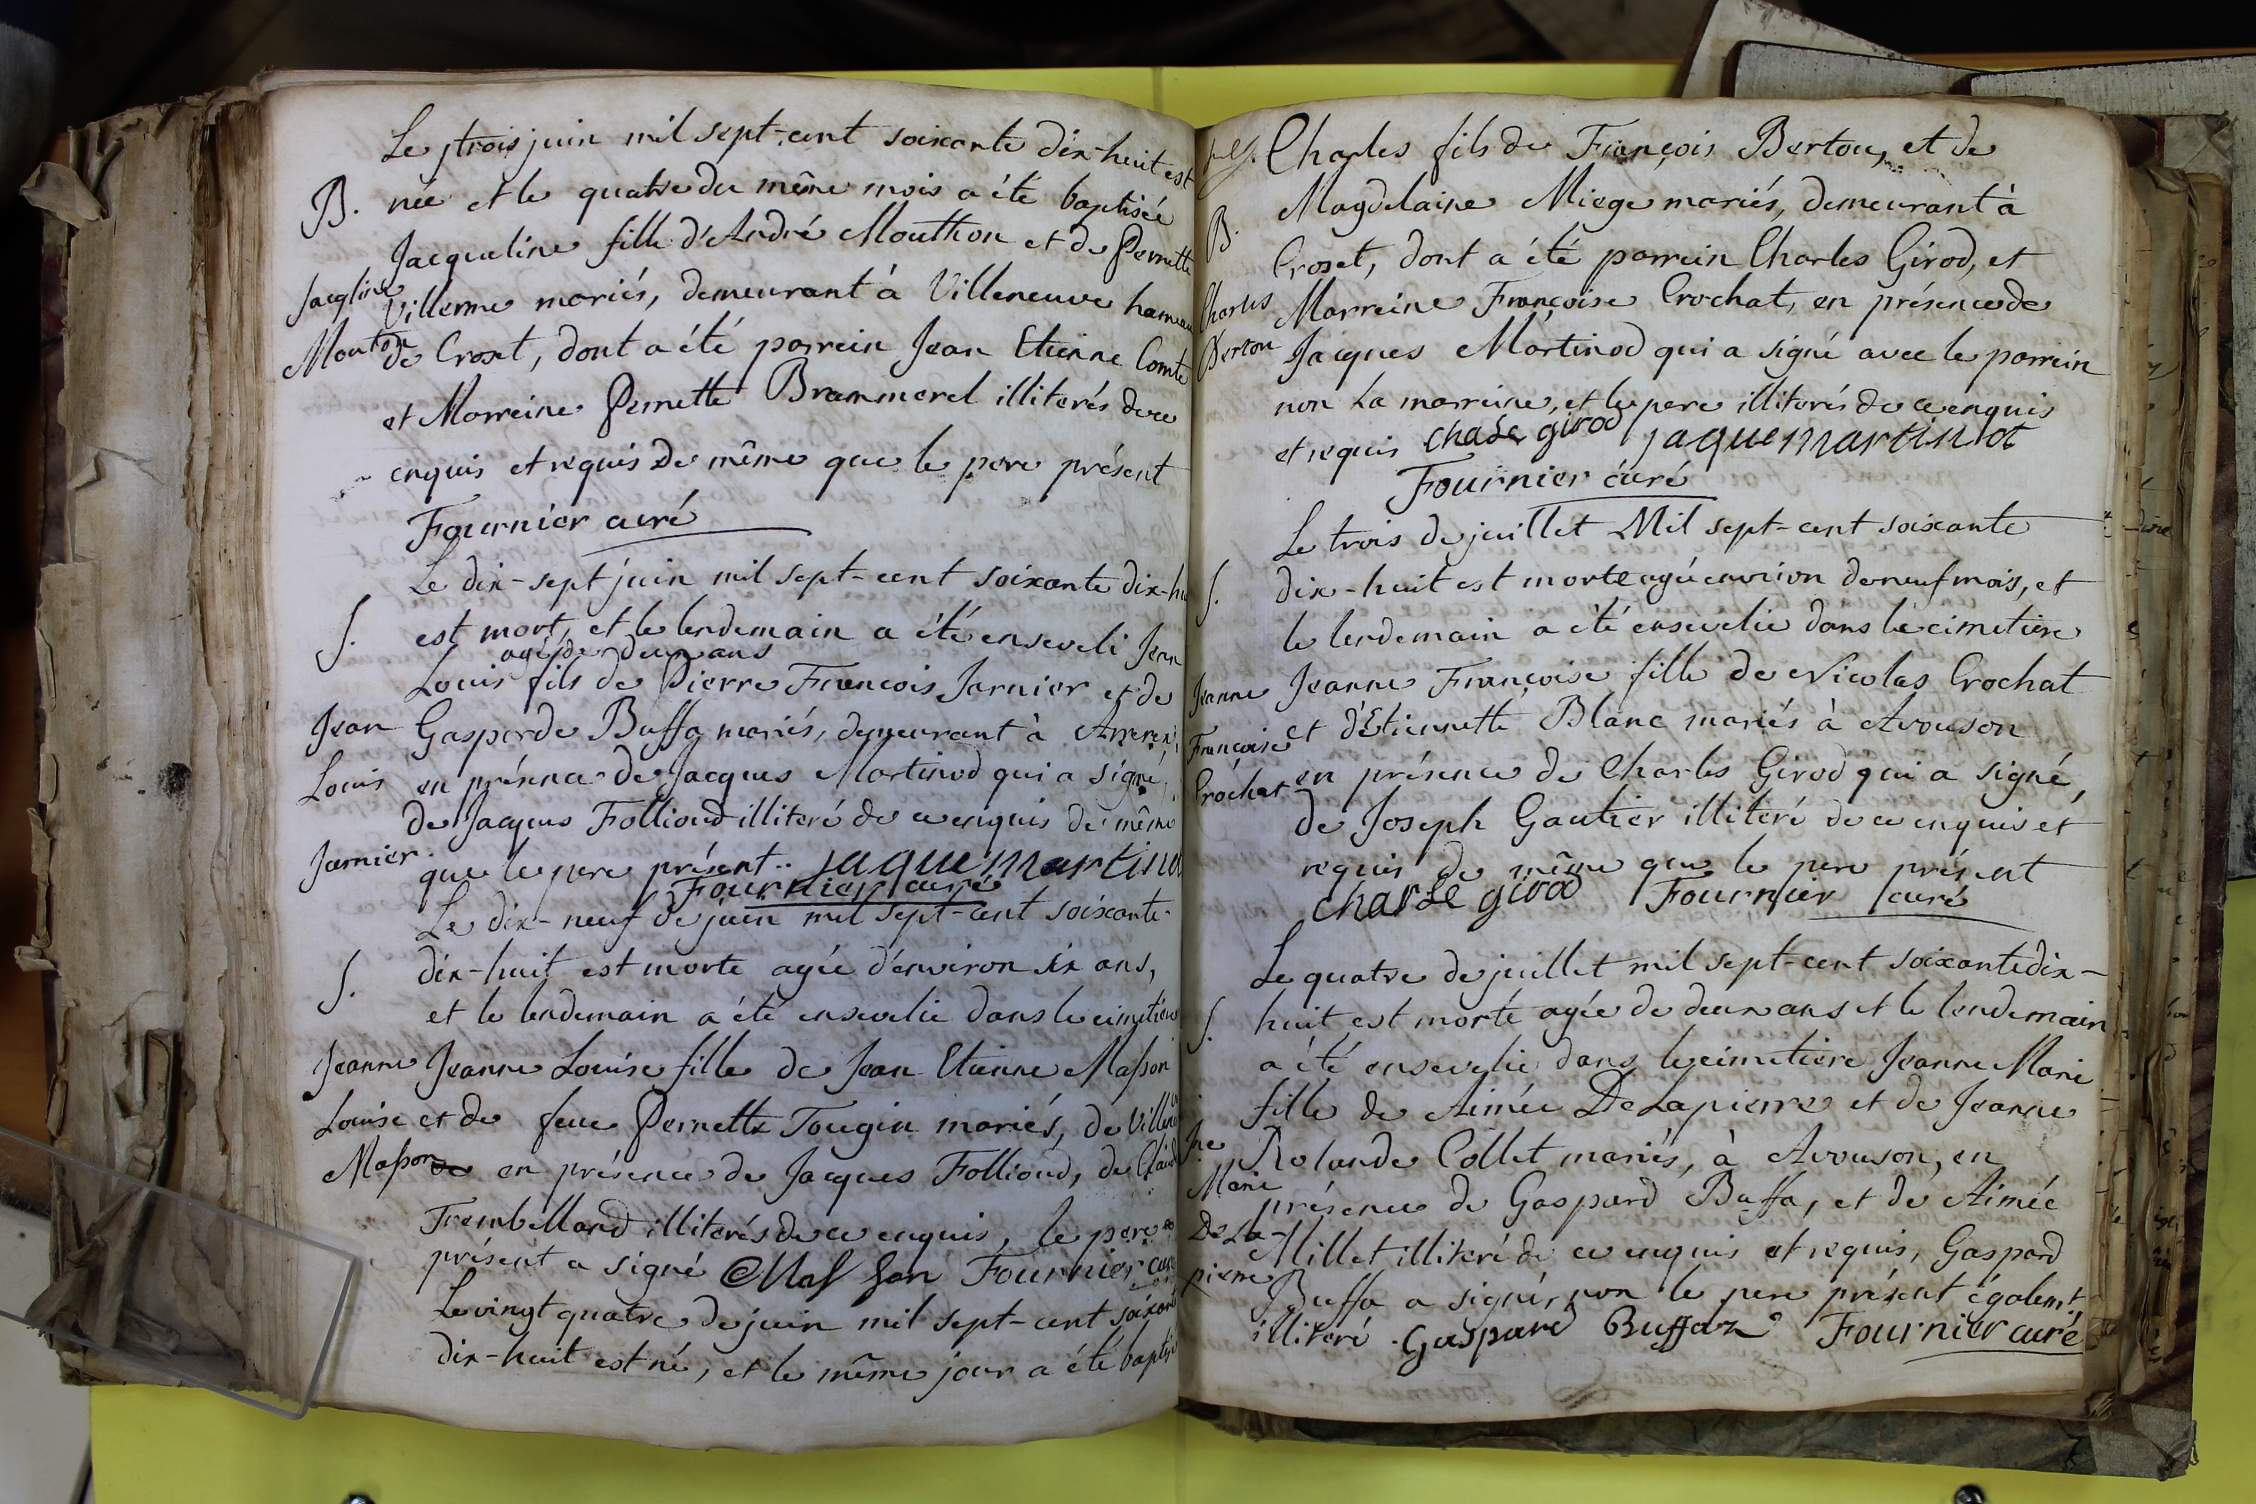 Le trois juin mil sept-cent soixante dix-huit est
B. née et le quatre du même mois a été baptisée
Jacqueline fille d'André Mouthon et de Pernette
Jacqline Villerme mariés, demeurant à Villeneuve hameau
Mouton de Croset, dont a été parrein Jean Etienne Comte
et Marreine Pernette Brammerel illiterés de ce
enquis et requis de même que le pere présent
Fournier curé
Le dix-sept juin mil sept-cent soixante dix-hu
S. est mort, et le lendemain a été enseveli Jean
agé de deux ans
Louis fils de Pierre François Jarnier et de
Jean Gasparde Buffa mariés, demeurant à
Louis en présence de Jacques Martinod qui a signé,
de Jacques Folliond illiteré de ce enquis de même
Jarnier que le pere présent. jaque martinod
Fournier curé
Le dix-neuf de juin mil sept-cent soixante
S. dix-huit est morte agée d'environ six ans,
et le lendemain a été ensevelie dans le cimetiere
Jeanne Jeanne Louise fille de Jean Etienne Masson
Louise et de feue Pernette Tougin mariés, de
Masson en présence de Jacques Folliond, de Claude
Trembelland illiterés de ce enquis, le pere
présent a signé Masson Fournier curé
Le vingt quatre de juin mil sept-cent soixante
dix-huit est né, et le même jour a été baptisé
Charles fils de François Bertou, et de
Magdelaine Miege mariés, demeurant à
B. Croset, dont a été parrein Charles Girod, et
Charles Marreine Françoise Crochat, en présence de
Bertou Jacques Martinod qui a signé avec le parrein
non la marreine, et le pere illiterés de ce enquis
et requis charle girod jaque martinod
Fournier curé
Le trois de juillet Mil sept-cent soixante
S. dix-huit est morte agée environ de neuf mois, et
le lendemain a été ensevelie dans le cimetiere
Jeanne Jeanne Françoise fille de Nicolas Crochat
Françoise et d'Etiennette Blanc mariés à Avouson
Crochat en présence de Charles Girod qui a signé,
de Joseph Gautier illiteré de ce enquis et
requis de même que le pere présent
charle girod Fournier curé
Le quatre de juillet mil sept-cent soixante dix-
S. huit est morte agée de deux ans et le lendemain
a été ensevelie dans le cimetiere Jeanne Marie
fille de Aimée De Lapierre et de Jeanne
Jne Rolande Collet mariés, à Avouson, en
Marie présence de Gaspard Buffa, et de Aimée
De La- Millet illiteré de ce enquis et requis, Gaspard
pierre Buffa a signé, non le pere présent égalemt.
illiteré. Gaspard Buffaz Fournier curé